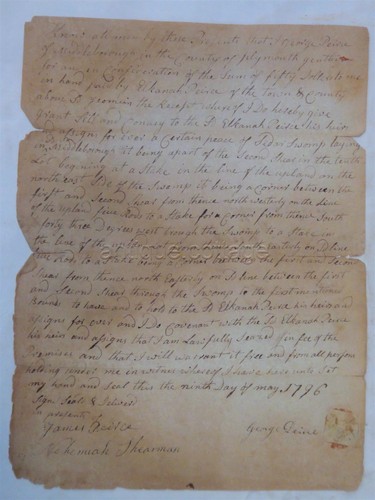 Know all men by these Presents that I George Peirce
of Middleborough in the County of plymouth gentn
for and in Consideration of the Sum of fifty Dollars
in hand paid by Elkanah Peirce of the Town & County
above the Receipt whereof I Do hereby give
grant Sell and Convey to the Sd Elkanah Peirce his heirs
and asigns for ever a Certain peace of Sedar Swamp laying
in Middleborough it being apart of the Second Shear in the
Lot begining at a Stake in the line of the upland on the
north east Side of the Swamp it being a Corner between the
first and Second Shear from thence north westerly on the line
of the upland five Rods to a Stake for a Corner from thence South
forty three Degrees west through the Swamp to a Stake in
the line of the upland
Rods to a Stake being a Corner between the first and Second
Shear from thence north Easterly on line between the first
and Second Shear through the Swamp to the first mentioned
Bound to have and to hold to the Sd Elkanah Peirce his heirs and
asigns for ever and I Do Covenant with the Sd Elkanah Peirce
his heirs and asigns that I am Lawfully Seazed in fee of the
Premises and that I will warrant it free and from all persons
holding under me in witness whereof I have here unto Set
my hand and Seal this the ninth Day of may 1796
Sign Seald & Deliverd
in presents of
James Peirce
George Peirce
Nehemiah Shearman